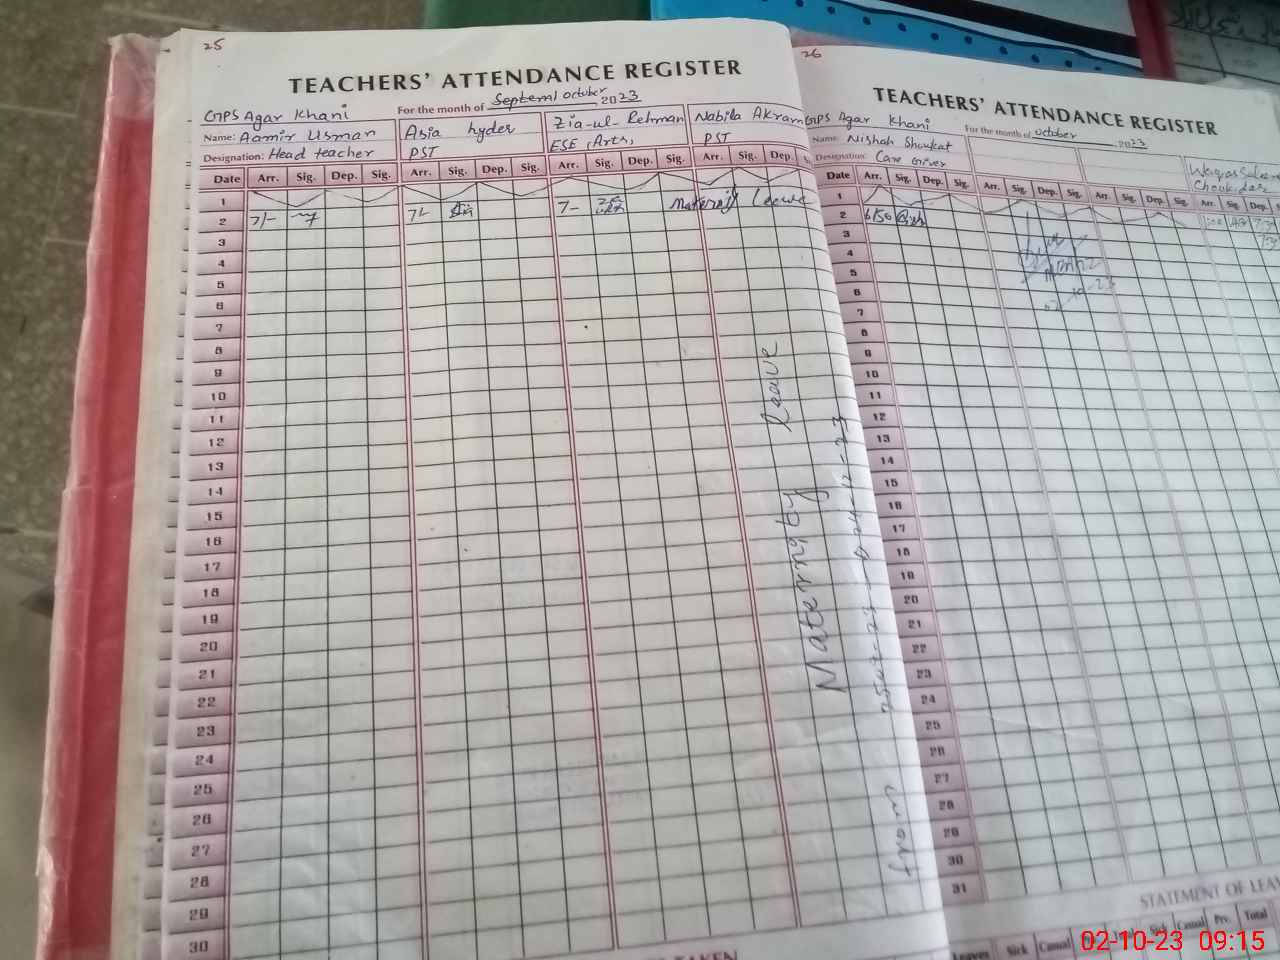 25
TEACHERS' ATTENDANCE REGISTER
GPS Agar Khani For the month of Septem October 2023
Name: Aamir Usman Asia hyder Zia-ul-Rehman Nabila Akram
Designation: Head teacher PST ESE (Arts) PST
Date Arr. Sig. Dep. Sig. Arr. Sig. Dep. Sig. Arr. Sig. Dep. Sig. Arr. Sig. Dep.
1
2 7/- 7/- 7-
3
4
5
6
7
8
9
10
11
12
13
14
15
16
17
18
19
20
21
22
23
24
25
26
27
28
29
30
Maternity leave
from
TAKEN
26
TEACHERS' ATTENDANCE REGISTER
GPS Agar Khani For the month of October 2023
Name: Nishah Shoukat
Designation: Care Giver Chowkidar
Date Arr. Sig. Dep. Sig. Arr. Sig. Dep. Sig. Arr. Sig. Dep. Sig. Arr. Sig. Dep.
1
2 6/50
3
4
5
6
7
8
9
10
11
12
13
14
15
16
17
18
19
20
21
22
23
24
25
26
27
28
29
30
31
STATEMENT OF LEAV
Leaves Sick Casual Sick Casual Prv. Total
02-10-23 09:15